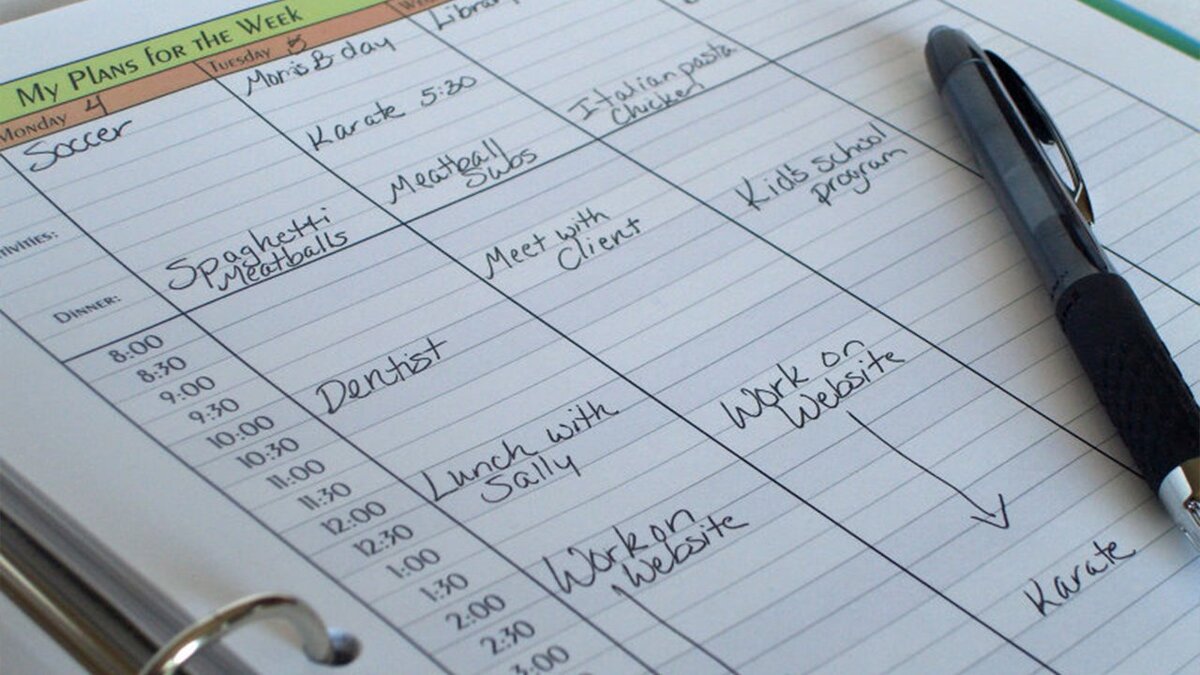 My Plans for the Week
Monday 4
Tuesday 5
Soccer
Mom's B day
Karate 5:30
Italian pasta
chicken
Meatball
Subs
Spaghetti
Meatballs
Dinner:
Kid's school
program
Meet with
Client
Dentist
Lunch with
Sally
Work on
Website
Work on
Website
Karate
8:00
8:30
9:00
9:30
10:00
10:30
11:00
11:30
12:00
12:30
1:00
1:30
2:00
2:30
3:00